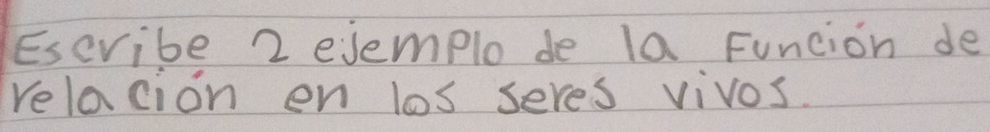 Escribe 2 ejemplo de la Función de
relación en los seres vivos.